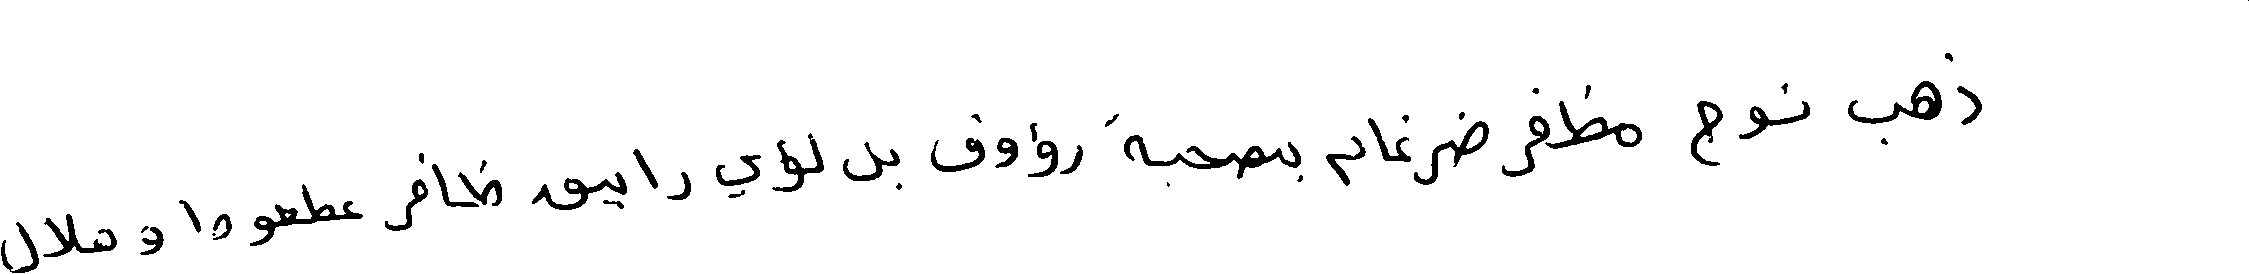 ذهب نوح مظفر ضرغام بصحبة رؤوف بن لؤي رايق ظافر عطعوط و هلال